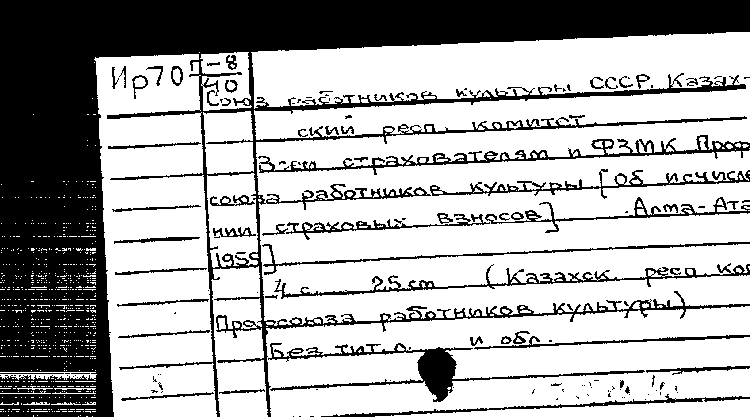 Ир70 П-8
40
Союз работников культуры СССР. Казах-
ский респ. комитет.
Всем страхователям и ФЗМК Проф
союза работников культуры [Об исчисле
нии страховых взносов] Алма-Ата
[1955]
4 с. 25 cm (Казахск. респ. ком
Профсоюза работников культуры)
Без тит. л. и обл.